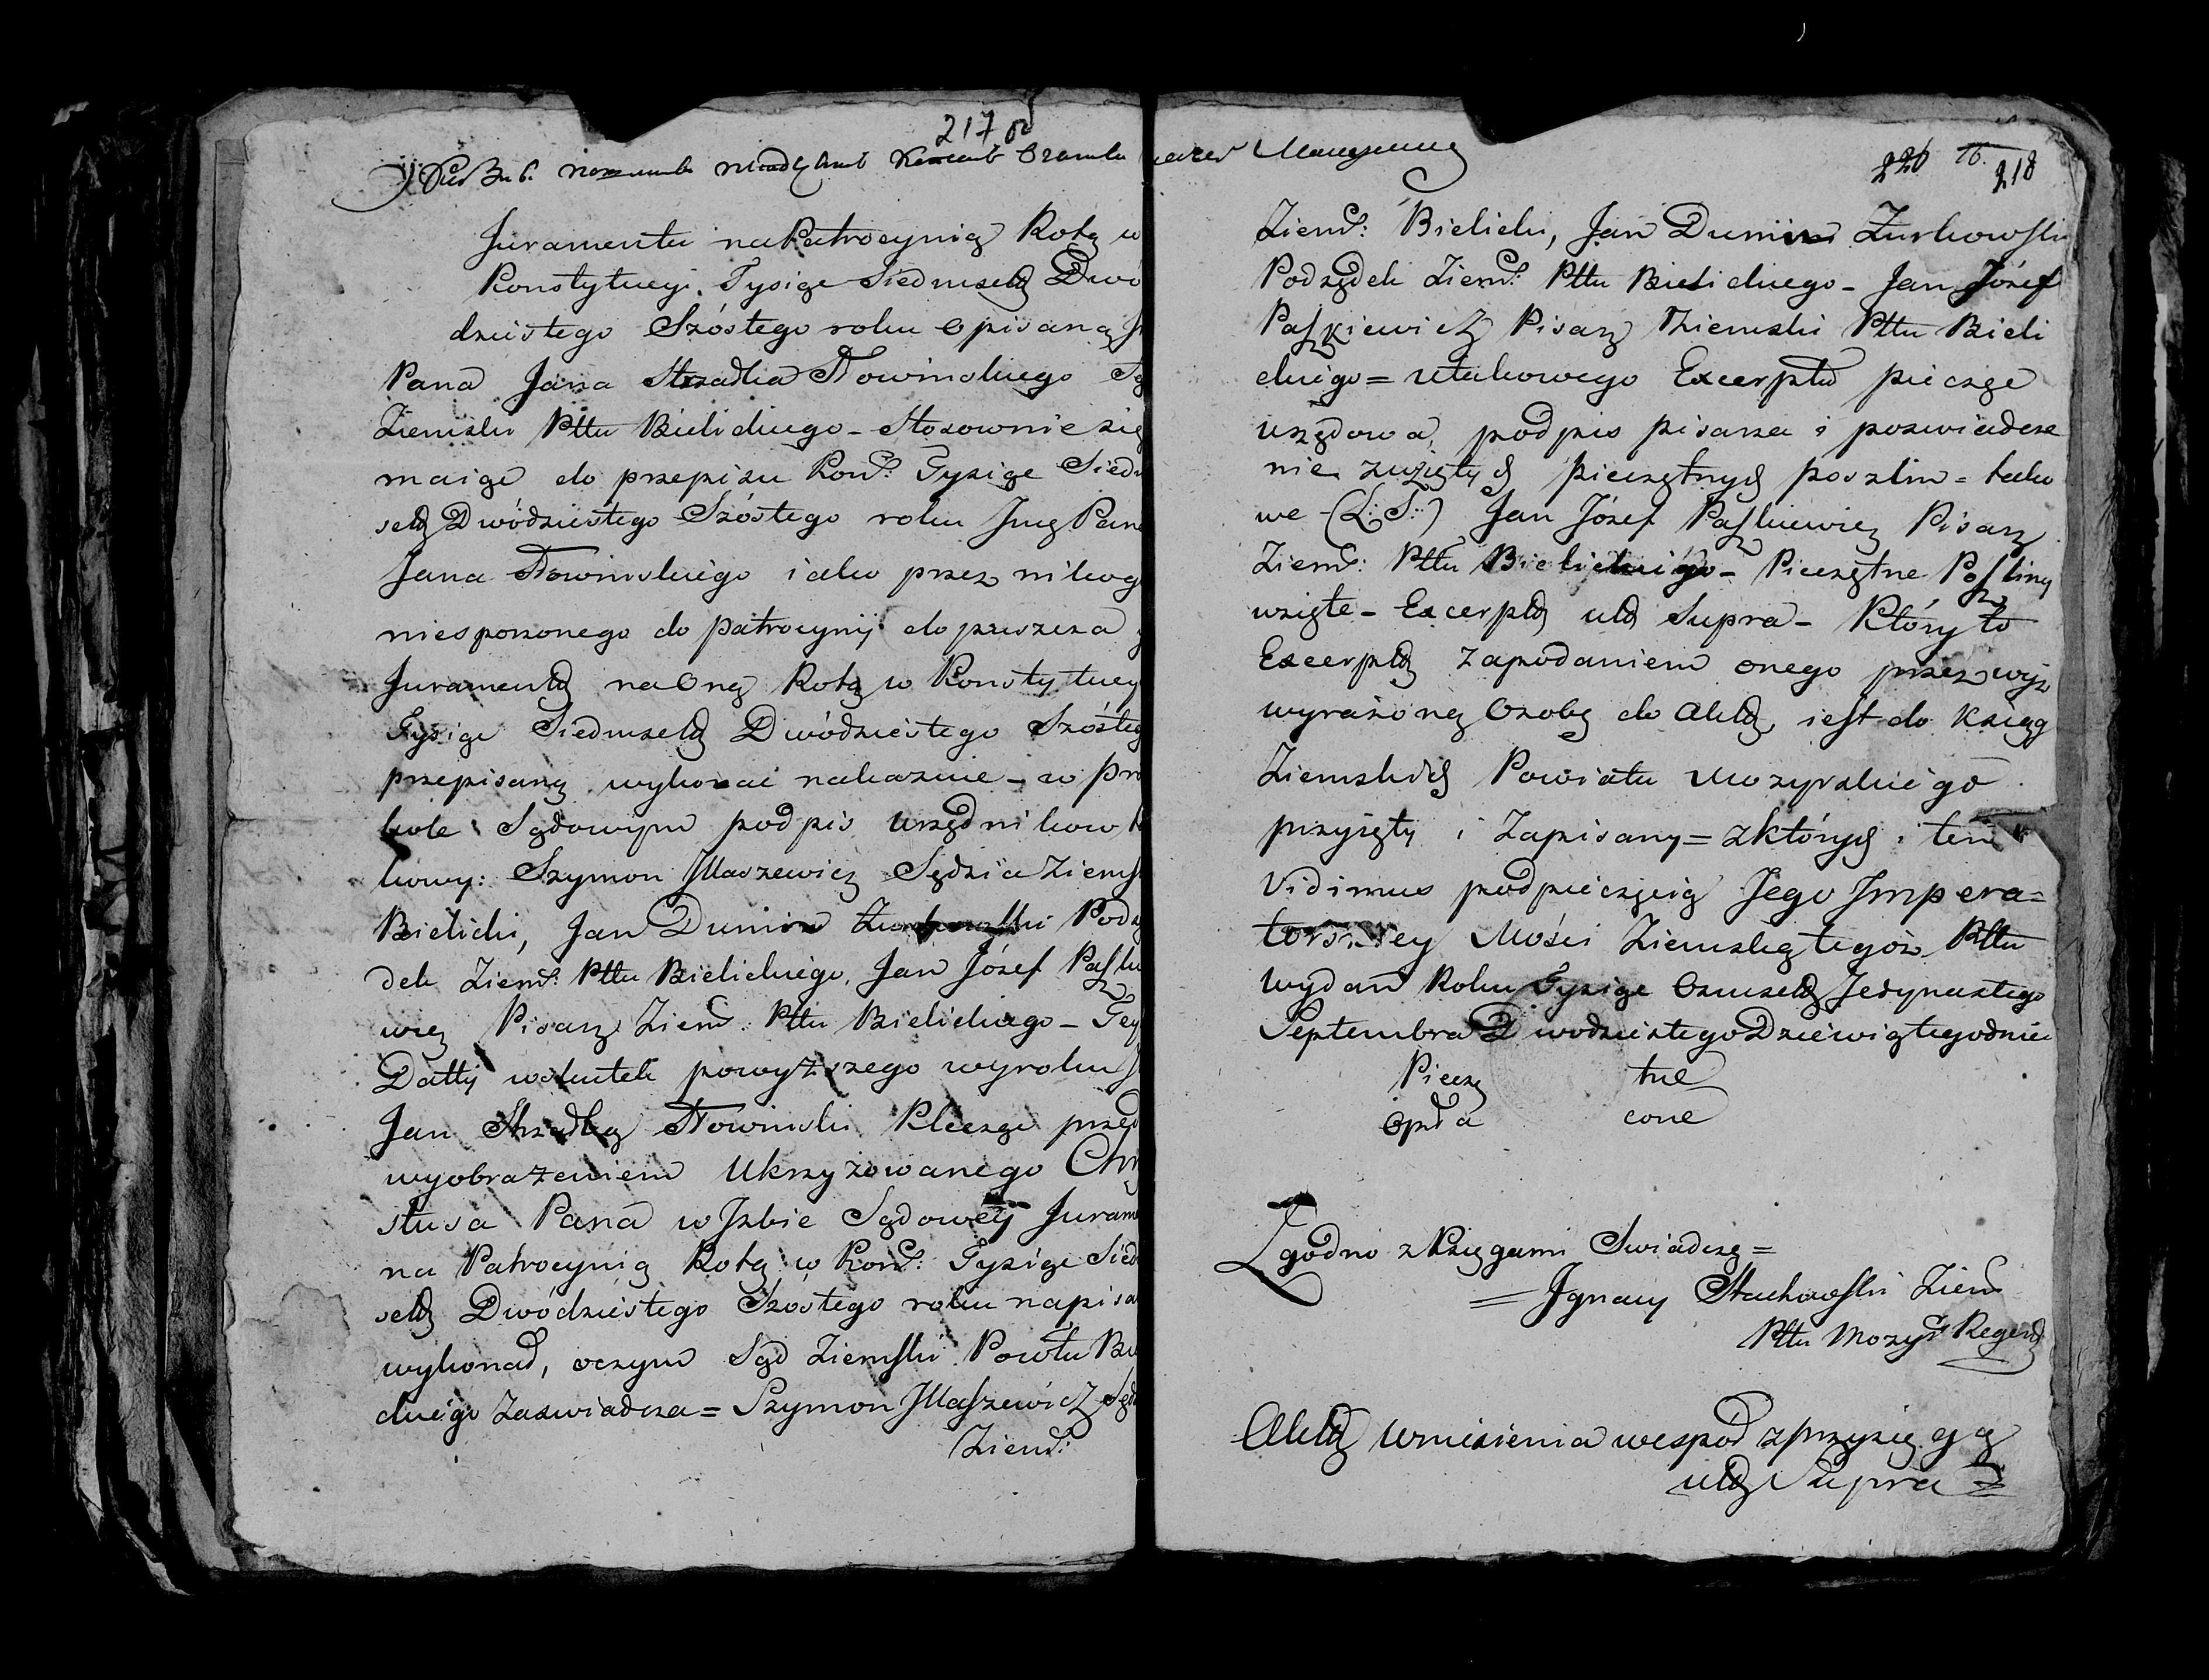 217 об
Juramentu na Patrocynią Rotą w
Konstytucyi Tysiąc Siedmset Dwó
dziestego Szóstego roku opisaną
Pana Jana Strzadła Nowinskiego
Ziemski Pttu Bielickiego - Stosownie się
maiąc do przepisu Kons: Tysiąc Siedm
set Dwódziestego Szóstego roku Jmę Pana
Jana Nowinskiego iako przez nikog
niesporzonego do Patrocynij dopuszcza
Jurament na Oną Rotę w Konstytucy
Tysiąc Siedmset Dwódziestego Szósteg
przepisaną wykonać nakazuie - w Pro
kole Sądowym podpis Urzędnikow
kowy: Szymon Illaszewicz Sędzia Ziemsk
Bielicki, Jan Dunin Zurkowski Podsę
dek Ziems: Pttu Bielickiego, Jan Józef Paszkie
wicz Pisarz Ziems: Pttu Bielickiego - Tey
Datty wskutek powyższego wyroku
Jan Strzadła Nowinski Klęcząc przed
wyobrażeniem Ukrzyżowanego Chry
stusa Pana w Izbie Sądowey Juram
na Patrocynią Rotą w Kons: Tysiąc Sied
set Dwódziestego Szóstego roku napisa
wykonał, oczym Sąd Ziemski Powttu Bie
ckiego Zaswiadcza = Szymon Illaszewicz Sęd
Ziems:
226 218
Ziems: Bielicki, Jan Dunin Zurkowski
Podsędek Ziems: Pttu Bielickiego - Jan Józef
Paszkiewicz Pisarz Ziemski Pttu Bieli
ckiego = utakowego Excerptu pieczęć
urzędowa, podpis pisarza i poswiadcze
nie zwziętych pieczętnych poszlin = tako
we (L: S:) Jan Józef Paszkiewicz Pisarz
Ziems: Pttu Bielickiego - Pieczętne Poszliny
wzięte - Excerpt ut Supra - Który to
Excerpt zapodaniem onego przez wyż
wyrażoną Osobę do Akt, iest do Xsiąg
Ziemskich Powiatu Mozyrskiego
przyięty i Zapisany = zktórych i ten
Vidimus podpieczęcią Jego Impera=
torskiey Mości Ziemską tegoż Pttu
wydan Roku Tysiąc Osmset Jedynastego
Septembra Dwodziestego Dziewiątego dnia
Pieczę tne
Opła cone
Zgodno z Xięgami Swiadczę =
= Jgnacy Stachowski Ziems
Pttu Mozyr Regent
Akt wniesienia wespoł zprzysięgą
ut Supra